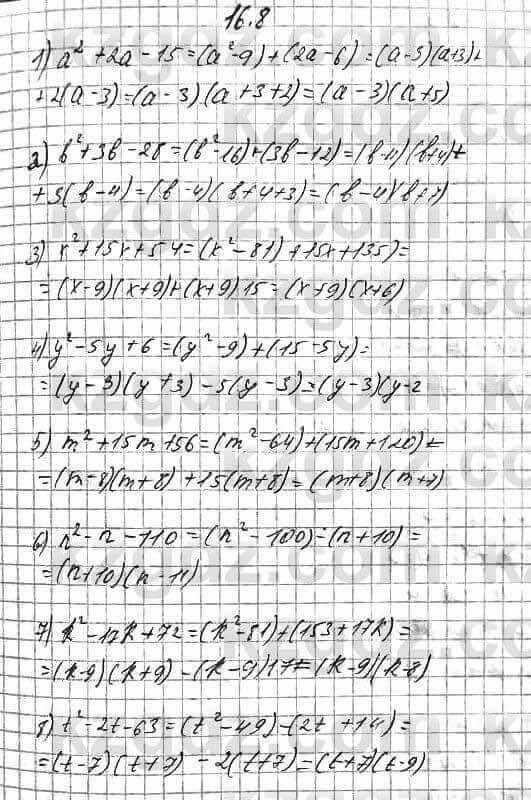 16.8
1) a² + 2a - 15 = (a² - 9) + (2a - 6) = (a - 3)(a + 3) +
+ 2(a - 3) = (a - 3)(a + 3 + 2) = (a - 3)(a + 5)
2) b² + 3b - 28 = (b² - 16) + (3b - 12) = (b - 4)(b + 4) +
+ 3(b - 4) = (b - 4)(b + 4 + 3) = (b - 4)(b + 7)
3) x² + 15x + 54 = (x² - 81) + 15x + 135) =
= (x - 9)(x + 9) + (x + 9) 15 = (x + 9)(x + 6)
4) y² - 5y + 6 = (y² - 9) + (15 - 5y) =
= (y - 3)(y + 3) - 5(y - 3) = (y - 3)(y - 2
5) m² + 15m + 56 = (m² - 64) + (15m + 120) =
= (m - 8)(m + 8) + 15(m + 8) = (m + 8)(m + 7)
6) n² - n - 110 = (n² - 100) - (n + 10) =
= (n + 10)(n - 11)
7) k² - 17k + 72 = (k² - 81) + (153 + 17k) =
= (k - 9)(k + 9) - (k - 9) 17 = (k - 9)(k - 8)
8) t² - 2t - 63 = (t² - 49) - (2t + 14) =
= (t - 7)(t + 7) - 2(t + 7) = (t + 7)(t - 9)
kzgdz.com